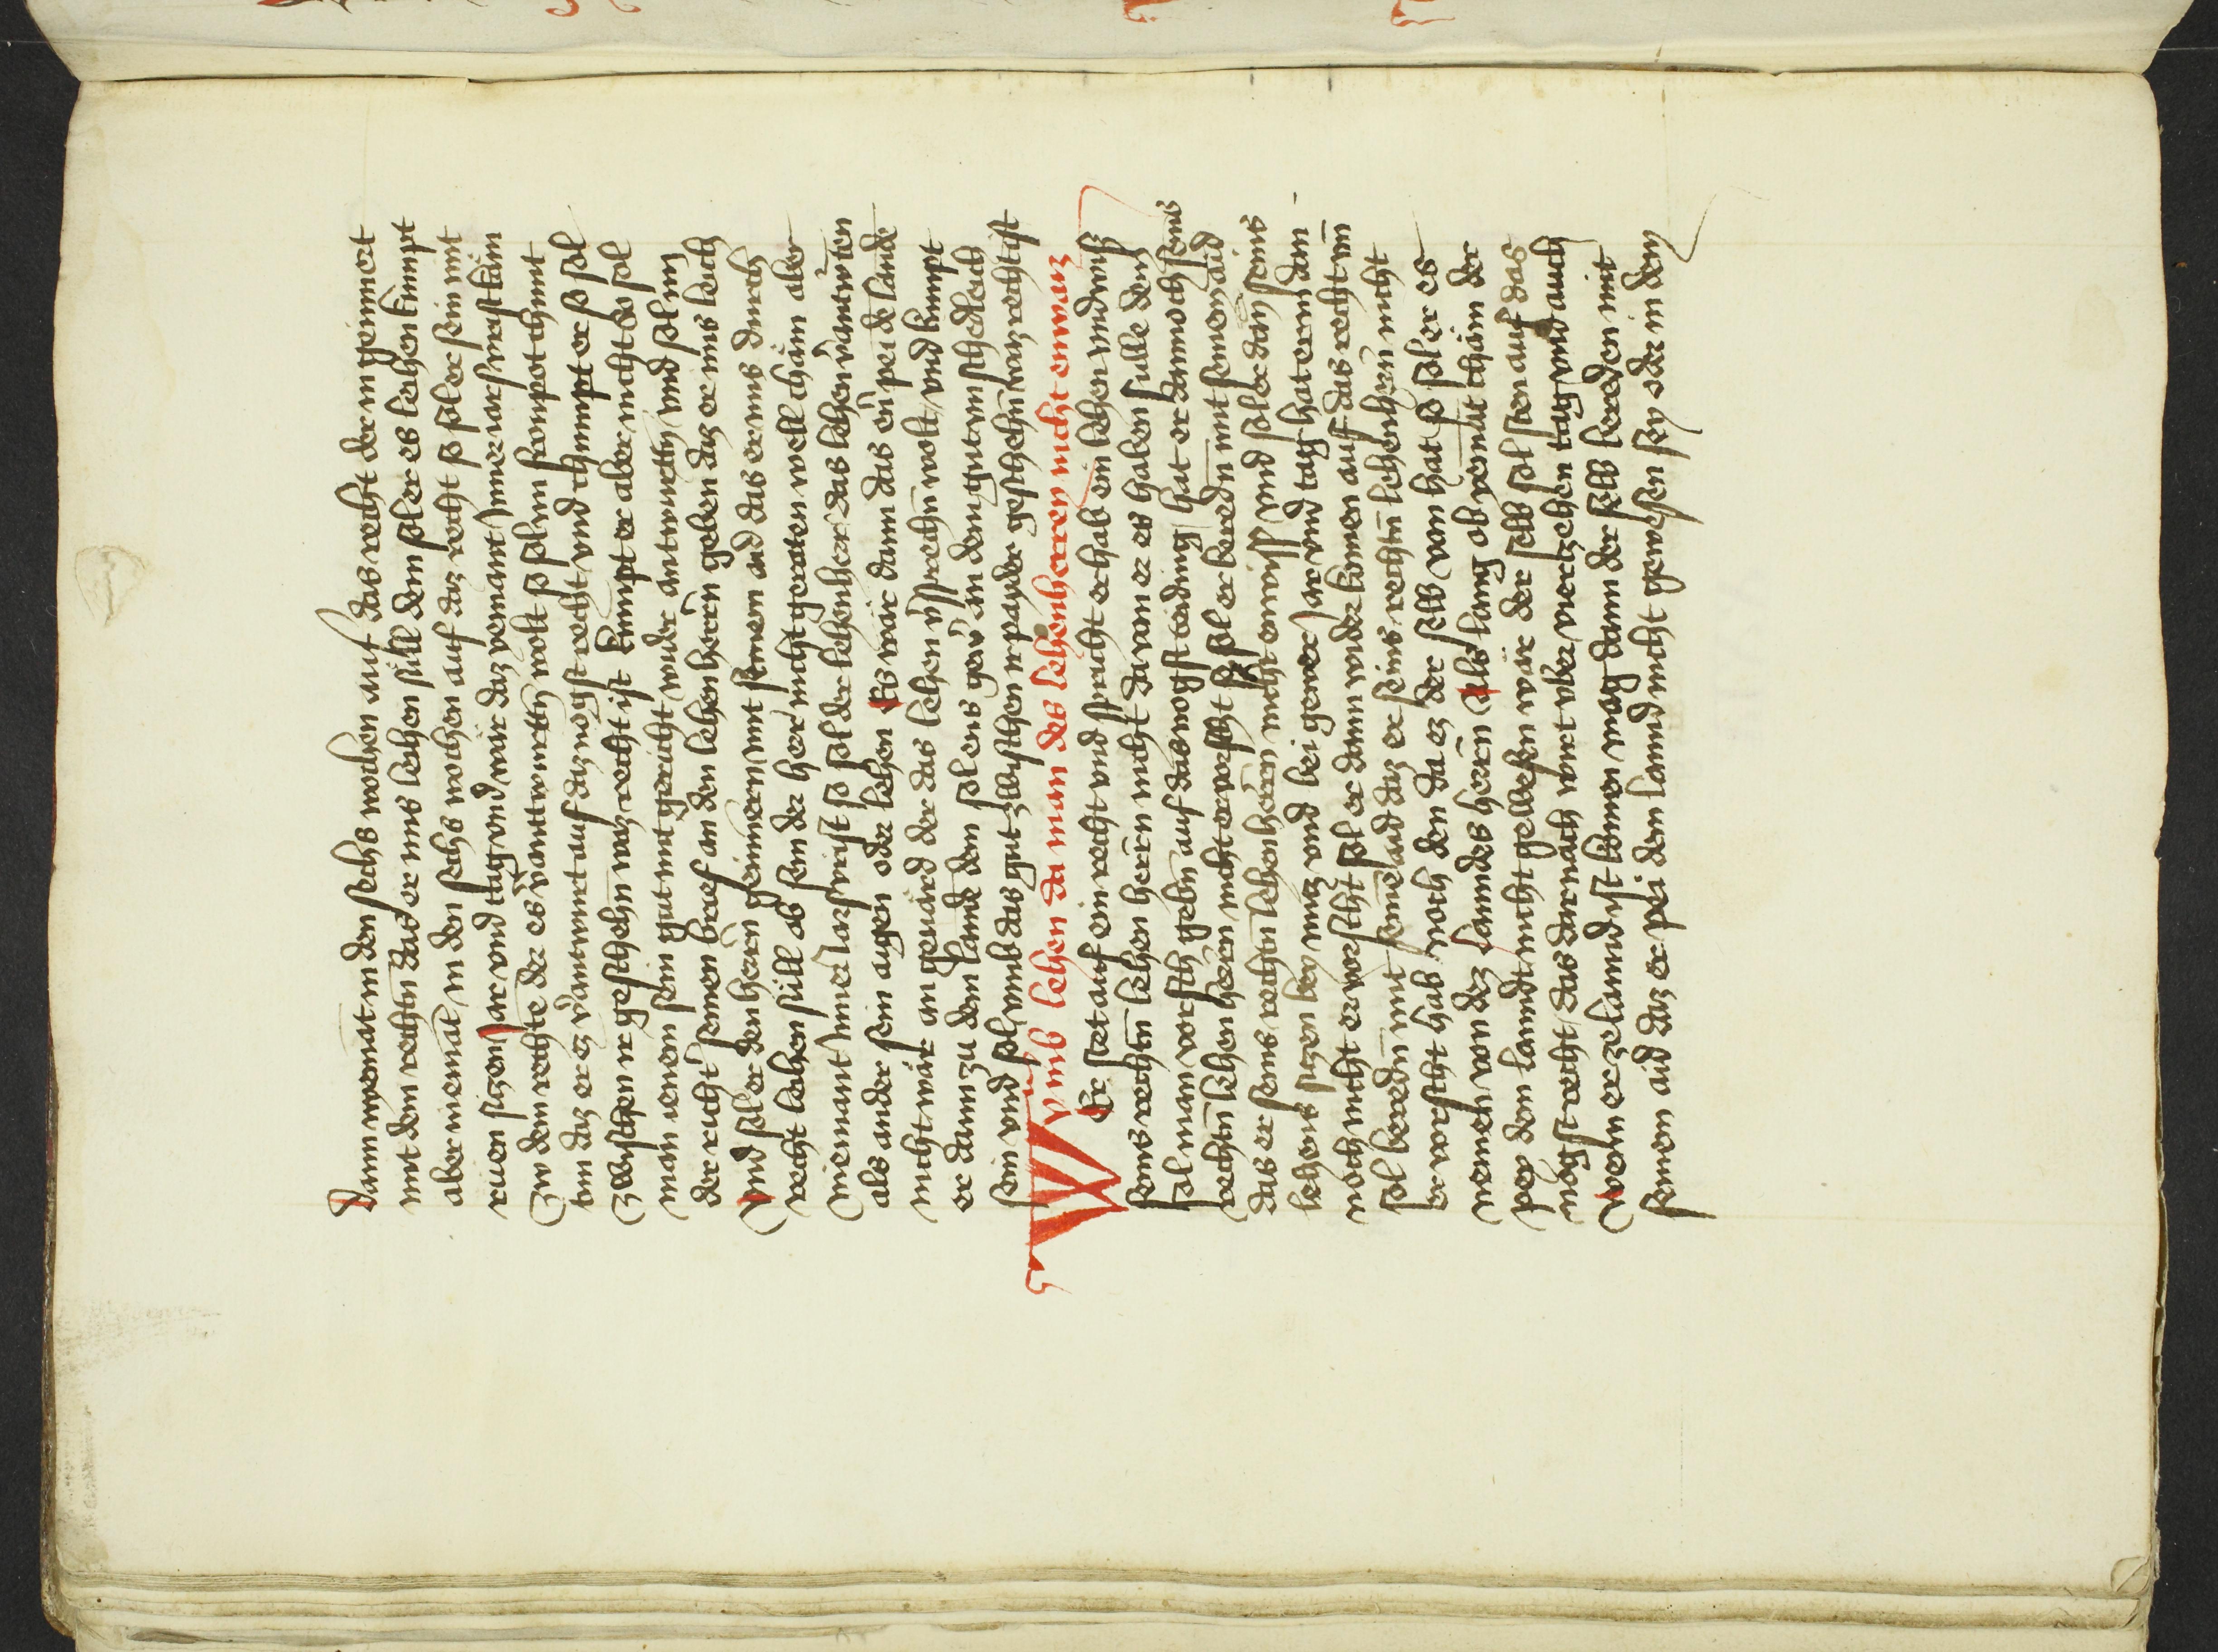 Dann nyemāt in den sechs wochen auf das recht der in geinnert
mit dem rechtn̄ das er ims lechen süll dem sol er es leihen kumpt
aber niemāt in den sechs wochen auf daz recht so sol er sein mit
ruen sizen Jar vnd tag vnd wär daz yemant Inner iars vrist käm
Zw dem rechtē der es v̄antwurttn̄ wolt so sol im fronpot chunt
tun daz er ez v̄antwurt auf daz nögst recht vnd chumpt er so sol
Zwischen ir geschehn̄ waz recht ist kumpt er aber nicht So sol
man ienem sein gut mit gericht wider antwurttn̄ vnd sol im
der richter seinen brief an den lehenherrn̄ geben daz er ims leich
Vnd sol er den herrn̄ geinnern mit seinem aid das er ims durch
recht leihen süll ob sein der herr nicht geraten well chäm aber
niemant inner iars vrist so sol der lehenherr das lehen v̄antwrten
als ander sein aygen oder lehen Es wär dann das er pei de lande
nicht wär an geuärd der das lehen v̄sprechn̄ wolt vnd kumpt
er dann zu dem lande dem sol ens gew an dem gut vnschedleich
sein vnd sol vmb das gut zwischen ir payder geschehn̄ waz recht ist
Vmb lehen da man des lehenherren nicht enwaiz
Er stet auf ein recht vnd spricht er hab ein lehen vnd wiß
seins rechtn̄ lehen herrn nicht da von er es haben sulle dem
sol man vorsch gebn̄ auf das nögst taiding hat er dannoch seins
rechtn̄ lehen herrn nicht ervorscht so sol er beredn̄ mit seinem aid
das er seins rechtn̄ lehen herrn nicht enwiss vnd sol er dan seins
lehens sizen bey nuz vnd bei gewer Jar vnd tag hat er in dan
noch nicht ervorscht sol er dann wider komen auf das recht vn̄
sol beredn̄ mit seinē aid daz er seins rechtn̄ lehenherrn nicht
ervorscht hab noch den da ez der selb von hat so sol er es
nemen von dez lanndes herrn Als lang ob yemāt chäm der
pey dem lanndt nicht gewesen wär der selb sol sten auf das
nögst recht das darnach wirt vber vierzehen tag vnd auch
wenn er ze lannd ist komen mag dann der selb bereden mit
seinem aid daz er pei dem lannd nicht gewesen sey oder in dem